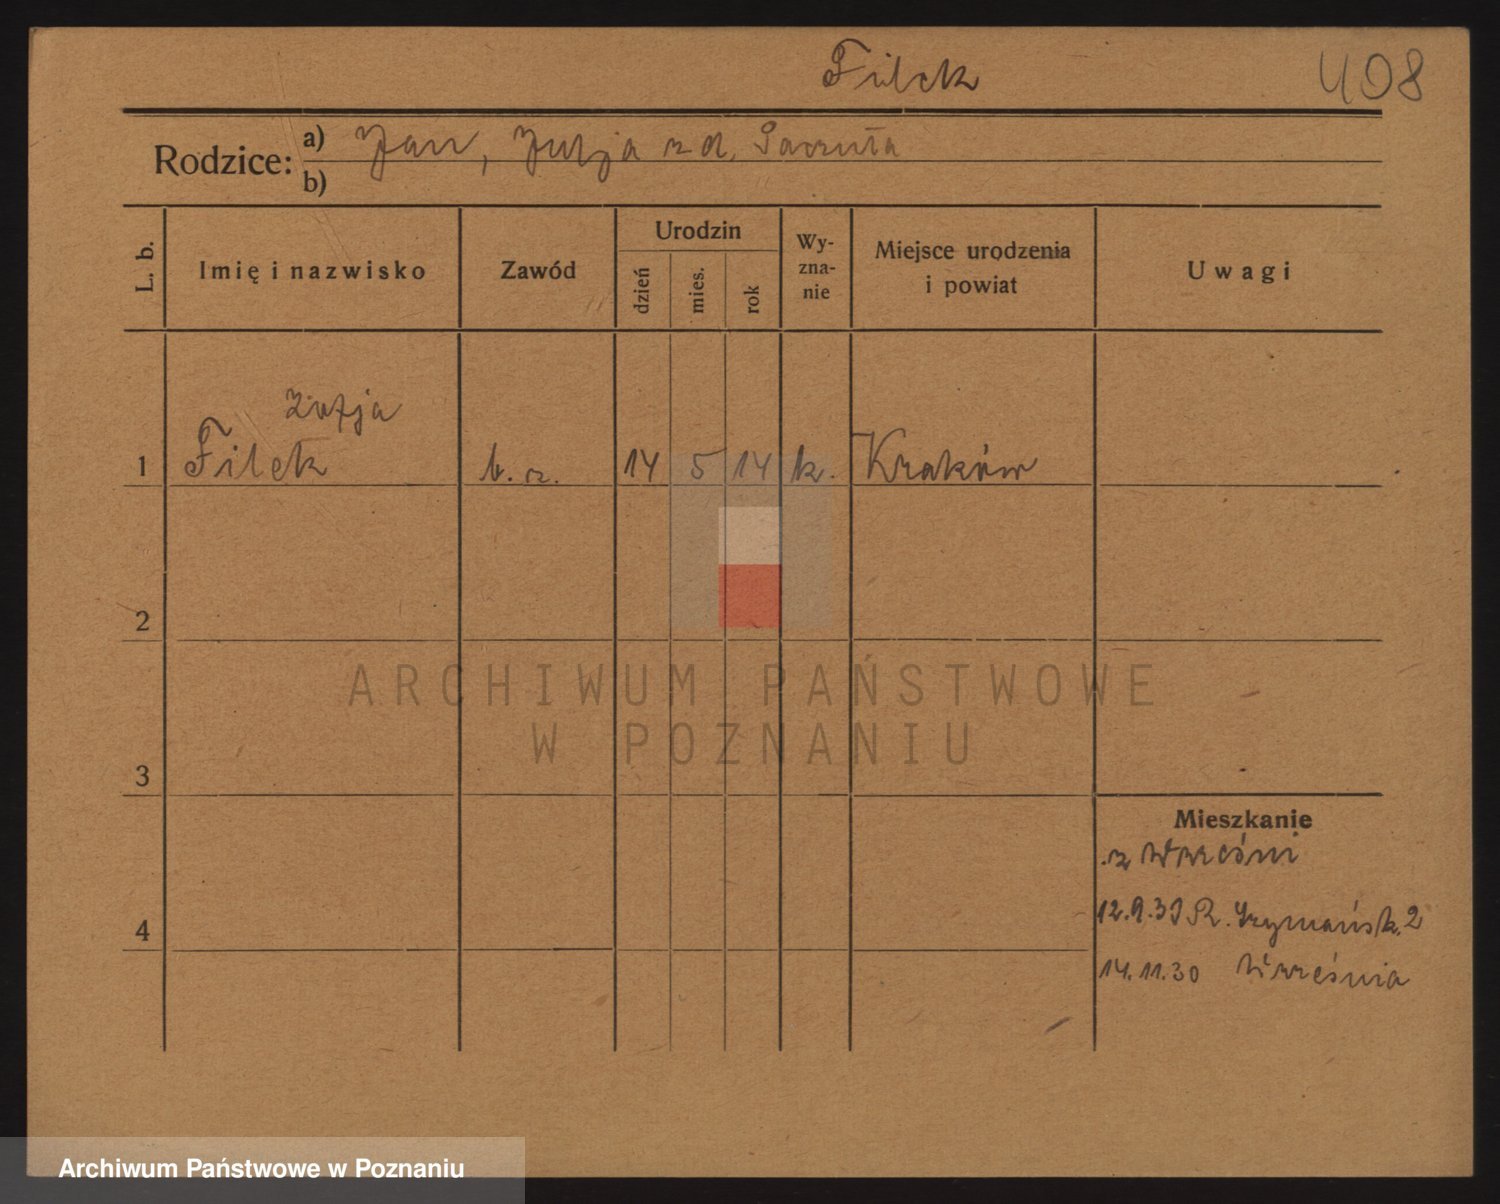 Filek 408
Rodzice: a) Jan, Julja z d. Paczuła
b)
L. b. Imię i nazwisko Zawód Urodzin dzień mies. rok Wyznanie Miejsce urodzenia i powiat Uwagi
Zofja
1 Filek b. z. 14 5 14 k. Kraków
2
ARCHIWUM PAŃSTWOWE
W POZNANIU
3
Mieszkanie
z Wrześni
4 12.9.30 R. Szymańsk. 2
14.11.30 Września
Archiwum Państwowe w Poznaniu